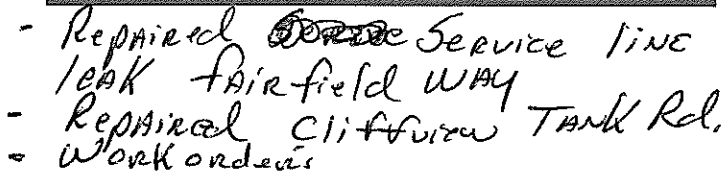 - Repaired Service line
leak fairfield way
- Repaired Cliffview Tank Rd.
- Work orders